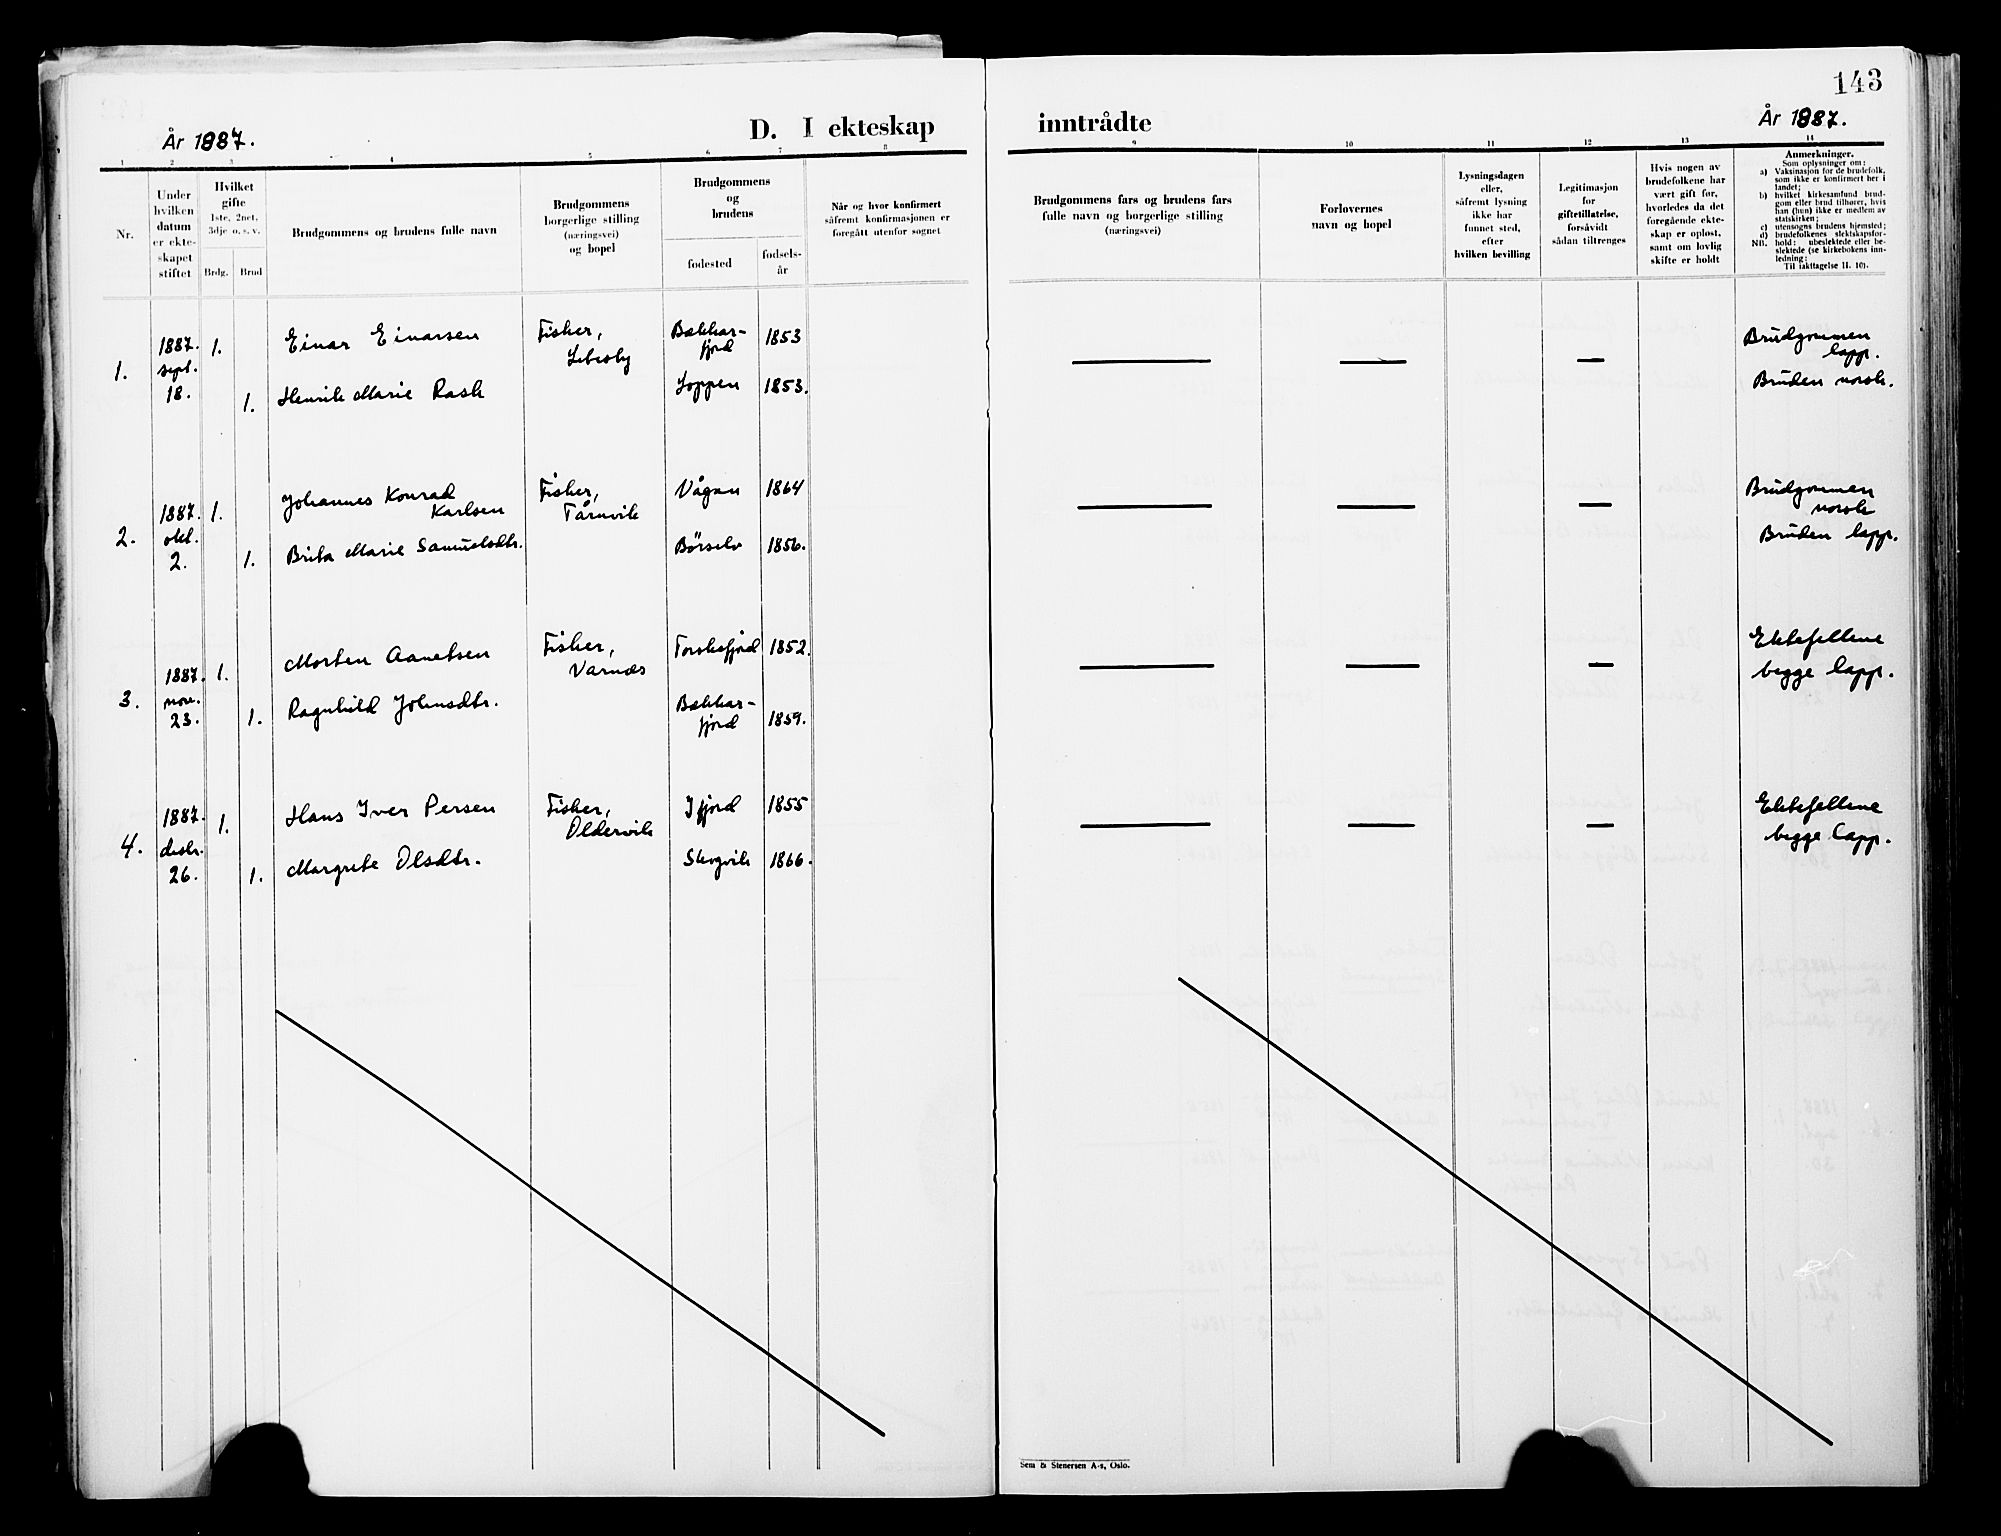 143
År 1887.
D. I ekteskap inntrådte
År 1887.
1 2 3 4 5 6 7 8 9 10 11 12 13 14
Nr.
Under
hvilken
datum
er ekte-
skapet
stiftet
Hvilket
gifte
1ste, 2net,
3dje o. s. v.
Brdg. Brud
Brudgommens og brudens fulle navn
Brudgommens
borgerlige stilling
(næringsvei)
og bopel
Brudgommens
og
brudens
fødested
fødsels-
år
Når og hvor konfirmert
såfremt konfirmasjonen er
foregått utenfor sognet
Brudgommens fars og brudens fars
fulle navn og borgerlige stilling
(næringsvei)
Forlovernes
navn og bopel
Lysningsdagen
eller,
såfremt lysning
ikke har
funnet sted,
efter
hvilken bevilling
Legitimasjon
for
giftetillatelse,
forsåvidt
sådan tiltrenges
Hvis nogen av
brudefolkene har
vært gift før,
hvorledes da det
foregående ekte-
skap er opløst,
samt om lovlig
skifte er holdt
Anmerkninger.
Som oplysninger om:
a) Vaksinasjon for de brudefolk,
som ikke er konfirmert her i
landet;
b) hvilket kirkesamfund brud-
gom eller brud tilhører, hvis
han (hun) ikke er medlem av
statskirken;
c) utensogns brudens hjemsted;
d) brudefolkenes slektskapsfor-
hold: ubeslektede eller be-
slektede (se kirkebokens inn-
ledning;
NB. Til iakttagelse II. 10).
1.
1887.
sept.
18.
1.
Einar Einarsen
Fisker,
Lebesby
Bekkar-
fjord
1853
Brudgommen
lapp.
1.
Henrik Marie Rask
Loppen
1853.
Bruden norsk.
2.
1887.
okt.
2.
1.
Johannes Konrad
Karlsen
Fisker,
Tårnvik
Vågan
1864
Brudgommen
norsk
1.
Brita Marie Samuelsdtr.
Børselv
1856.
Bruden lapp.
3.
1887.
nov.
23.
1.
Morten Aanetsen
Fisker,
Varnæs
Torskefjord
1852.
Ektefellene
begge lapp.
1.
Ragnhild Johnsdtr.
Bekkar-
fjord
1859.
4.
1887.
desbr.
26.
1.
Hans Iver Persen
Fisker,
Oldervik
Ifjord
1855
Ektefellene
begge lapp.
1.
Margrete Olsdtr.
Skogvik
1866.
Sem & Stenersen A-s, Oslo.